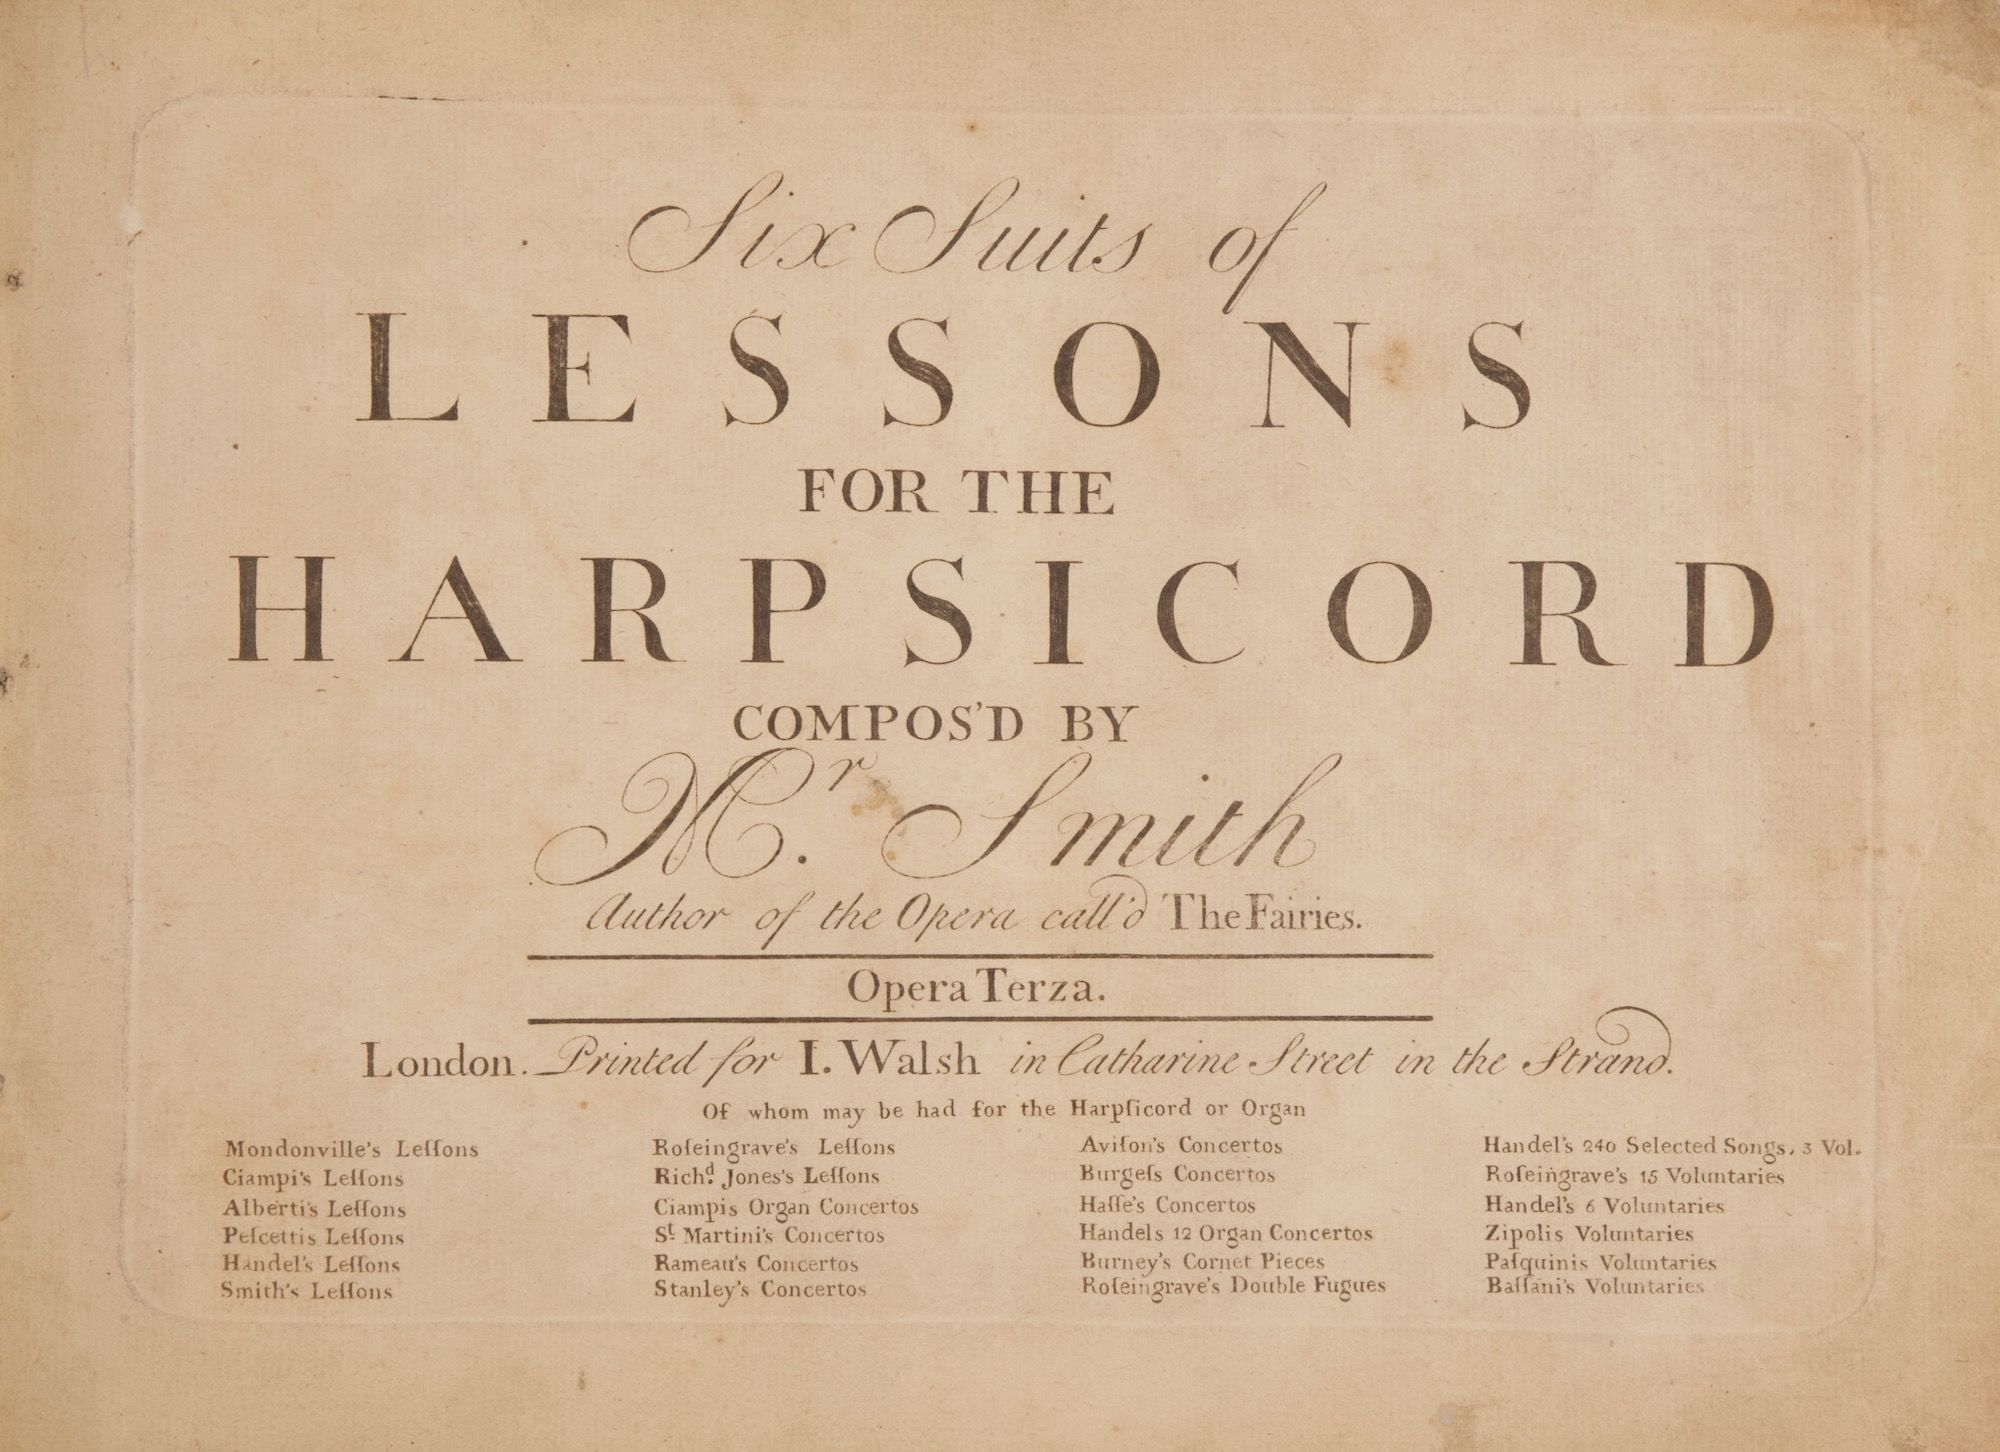 Six Suits of
LESSONS
FOR THE
HARPSICORD
COMPOS'D BY
Mr. Smith
Author of the Opera call'd The Fairies.
Opera Terza.
London. Printed for I. Walsh in Catharine Street in the Strand.
Of whom may be had for the Harpſicord or Organ
Mondonville's Leſſons
Ciampi's Leſſons
Alberti's Leſſons
Peſcettis Leſſons
Handel's Leſſons
Smith's Leſſons
Roſeingrave's Leſſons
Richd. Jones's Leſſons
Ciampis Organ Concertos
St. Martini's Concertos
Rameau's Concertos
Stanley's Concertos
Aviſon's Concertos
Burgeſs Concertos
Haſſe's Concertos
Handels 12 Organ Concertos
Burney's Cornet Pieces
Roſeingrave's Double Fugues
Handel's 240 Selected Songs, 3 Vol.
Roſeingrave's 15 Voluntaries
Handel's 6 Voluntaries
Zipolis Voluntaries
Paſquinis Voluntaries
Baſſani's Voluntaries